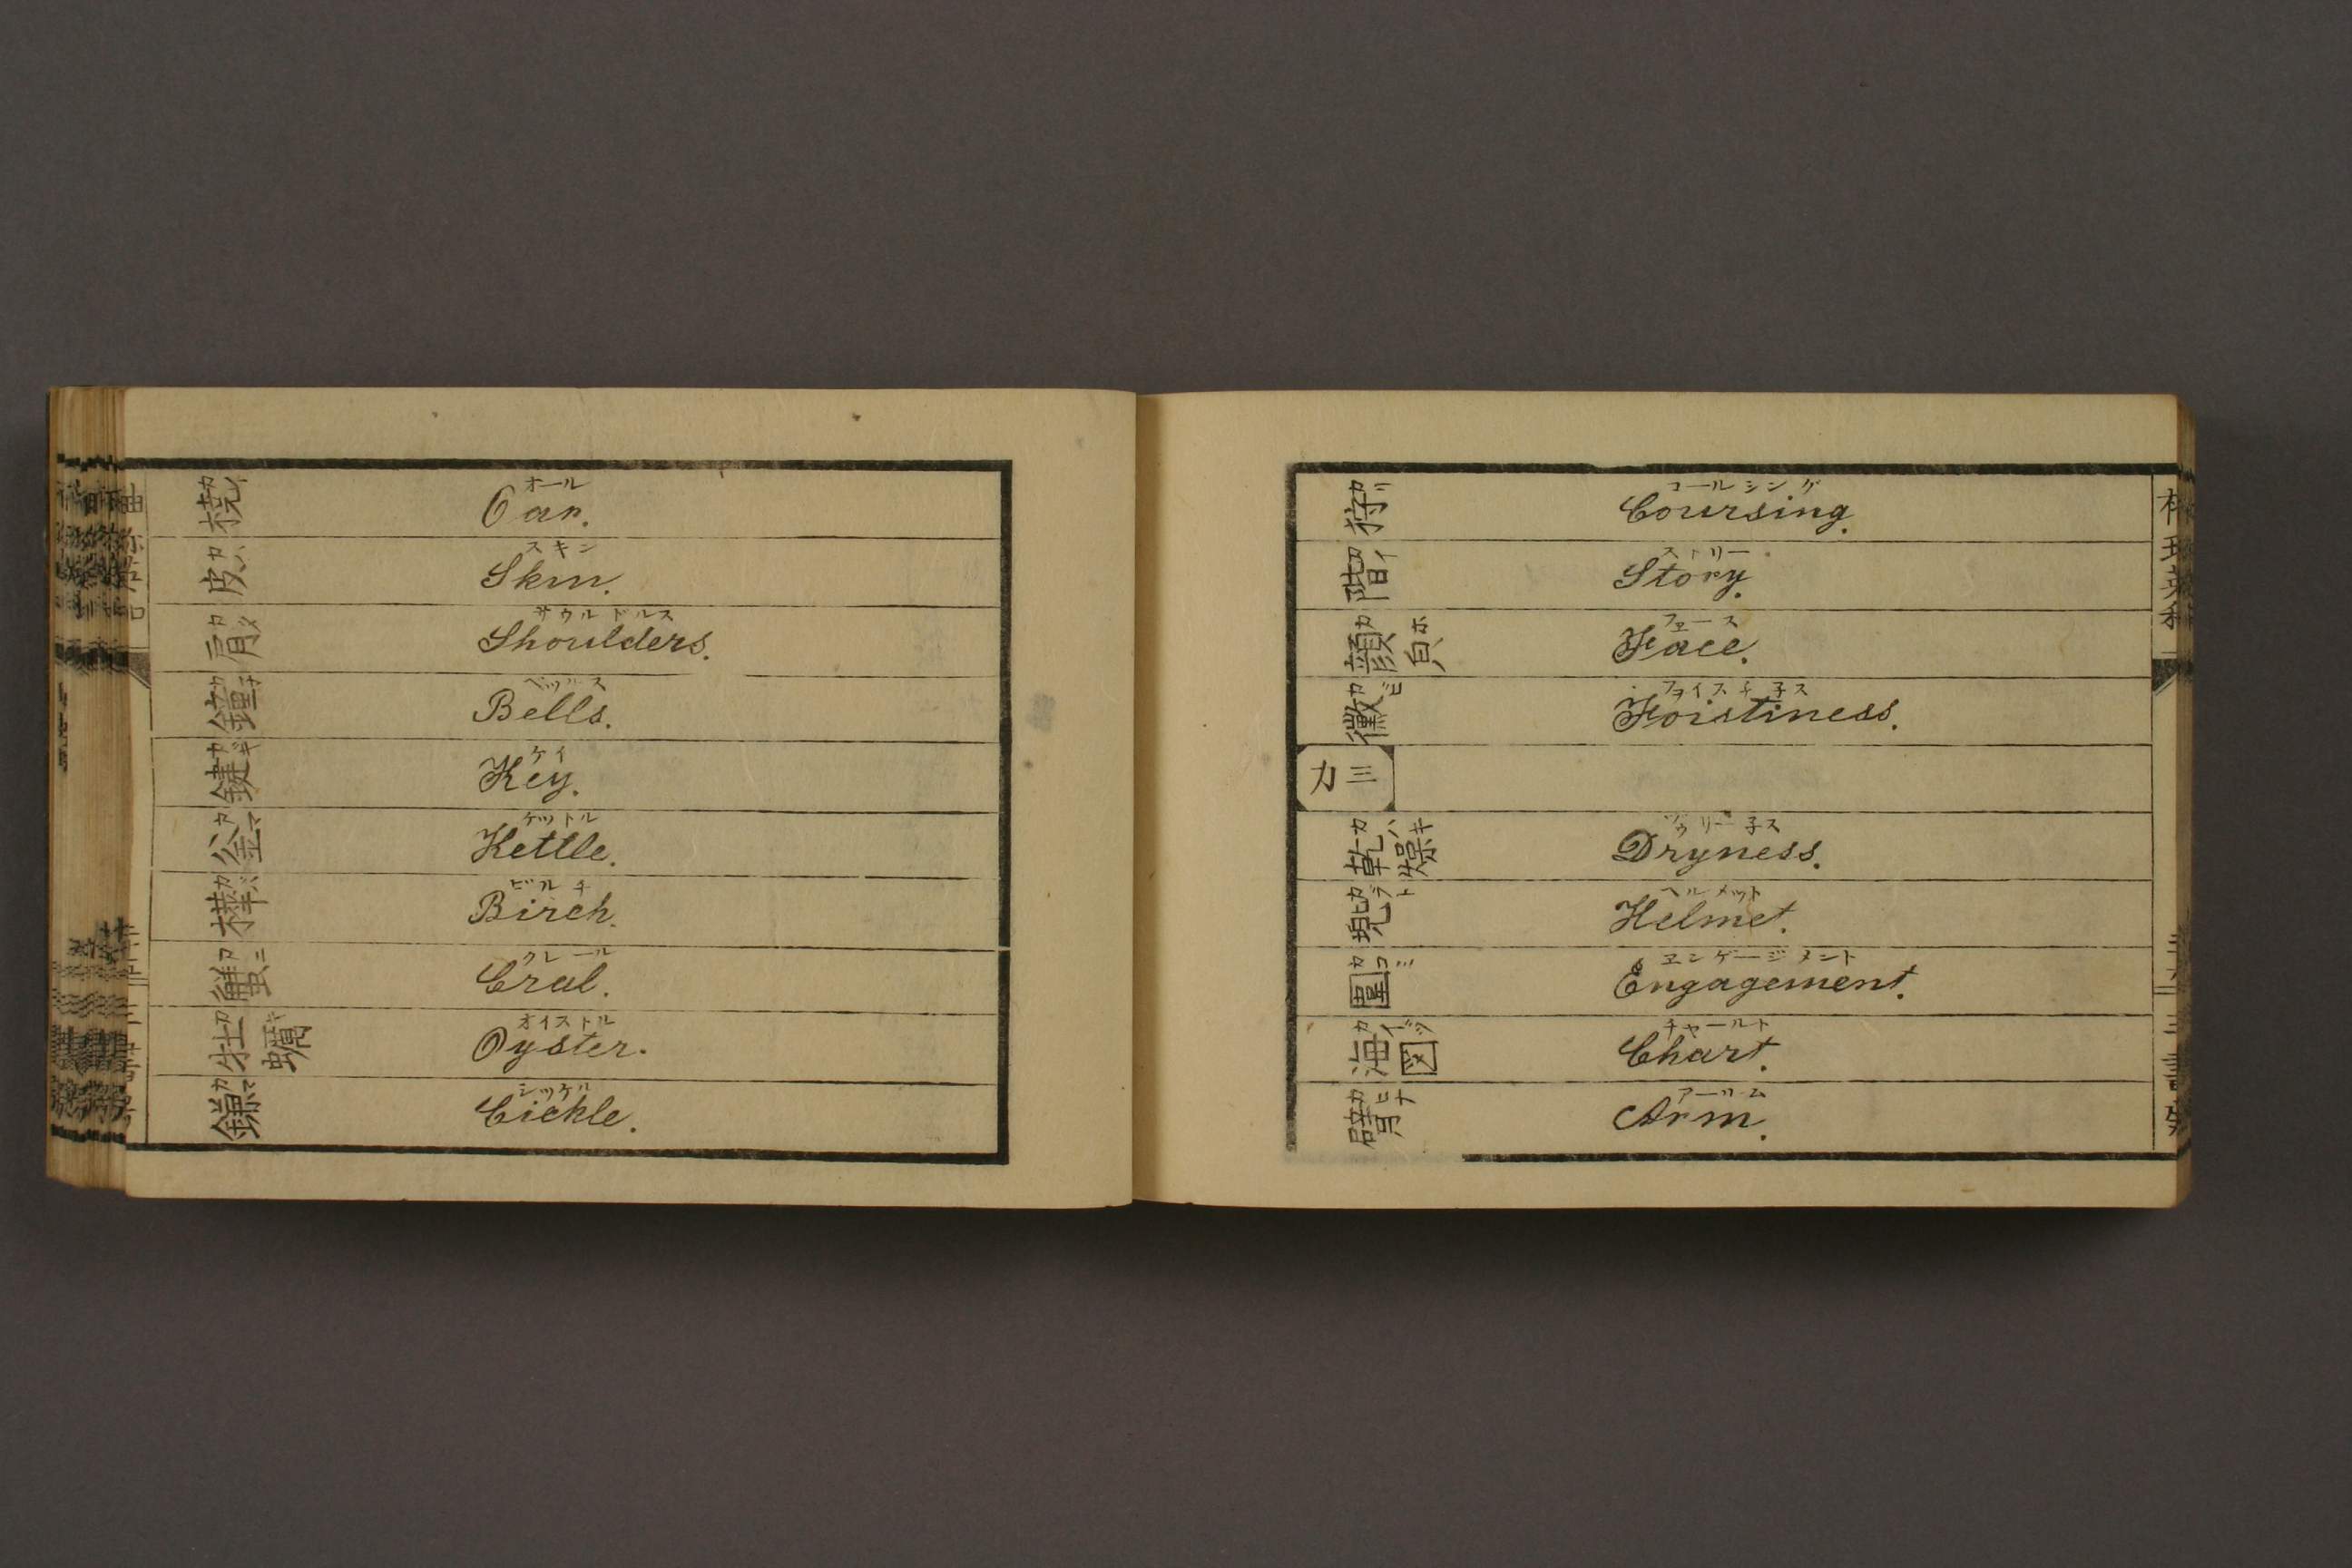 オール
橈 カイ Oar.
スキン
皮 カハ Skin.
サウルドルス
肩 カタ Shoulders.
ベッルス
鐘 カ子 Bells.
ケイ
鍵 カギ Key.
ケットル
釜 カマ Kettle.
ビルチ
樺 カバ Birch.
クレール
蟹 カニ Cral.
オイストル
牡蠣 カキ Oyster.
シッケル
鎌 カマ Cickle.
コールシング
狩 カリ Coursing.
ストリー
階 カイ Story.
フェース
顔 カホ Face.
フヲイスチ子ス
黴 カビ Foistiness.
カ三
ヅリー子ス
乾燥 カハキ Dryness.
ヘルメット
兜 カブト Helmet.
エンゲージメント
圍 カコミ Engagement.
チャールト
海図 カイヅ Chart.
アールム
臂 カヒナ Arm.